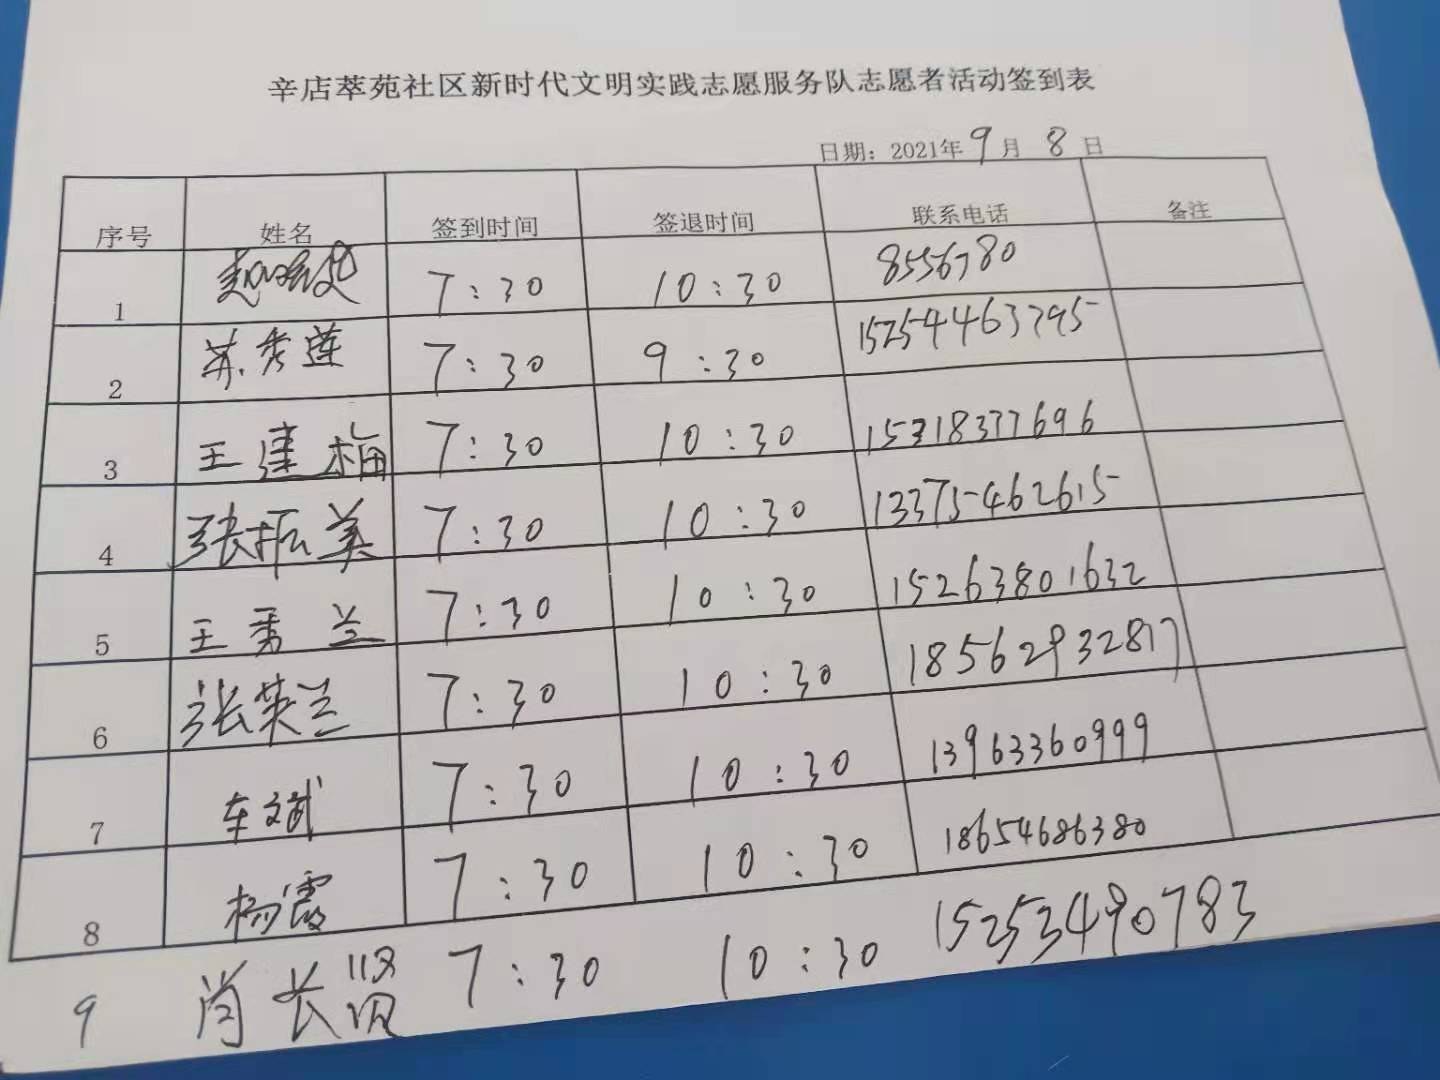 辛店萃苑社区新时代文明实践志愿服务队志愿者活动签到表
日期：2021年 9 月 8 日
序号 姓名 签到时间 签退时间 联系电话 备注
1 赵 7:30 10:30 8556780
2 苏秀莲 7:30 9:30 15254463795
3 王建梅 7:30 10:30 15318377696
4 张振美 7:30 10:30 13375462615
5 王秀兰 7:30 10:30 15263801632
6 张英兰 7:30 10:30 18562932817
7 车文斌 7:30 10:30 13963360999
8 杨霞 7:30 10:30 18654686380
9 肖长贤 7:30 10:30 15253490783